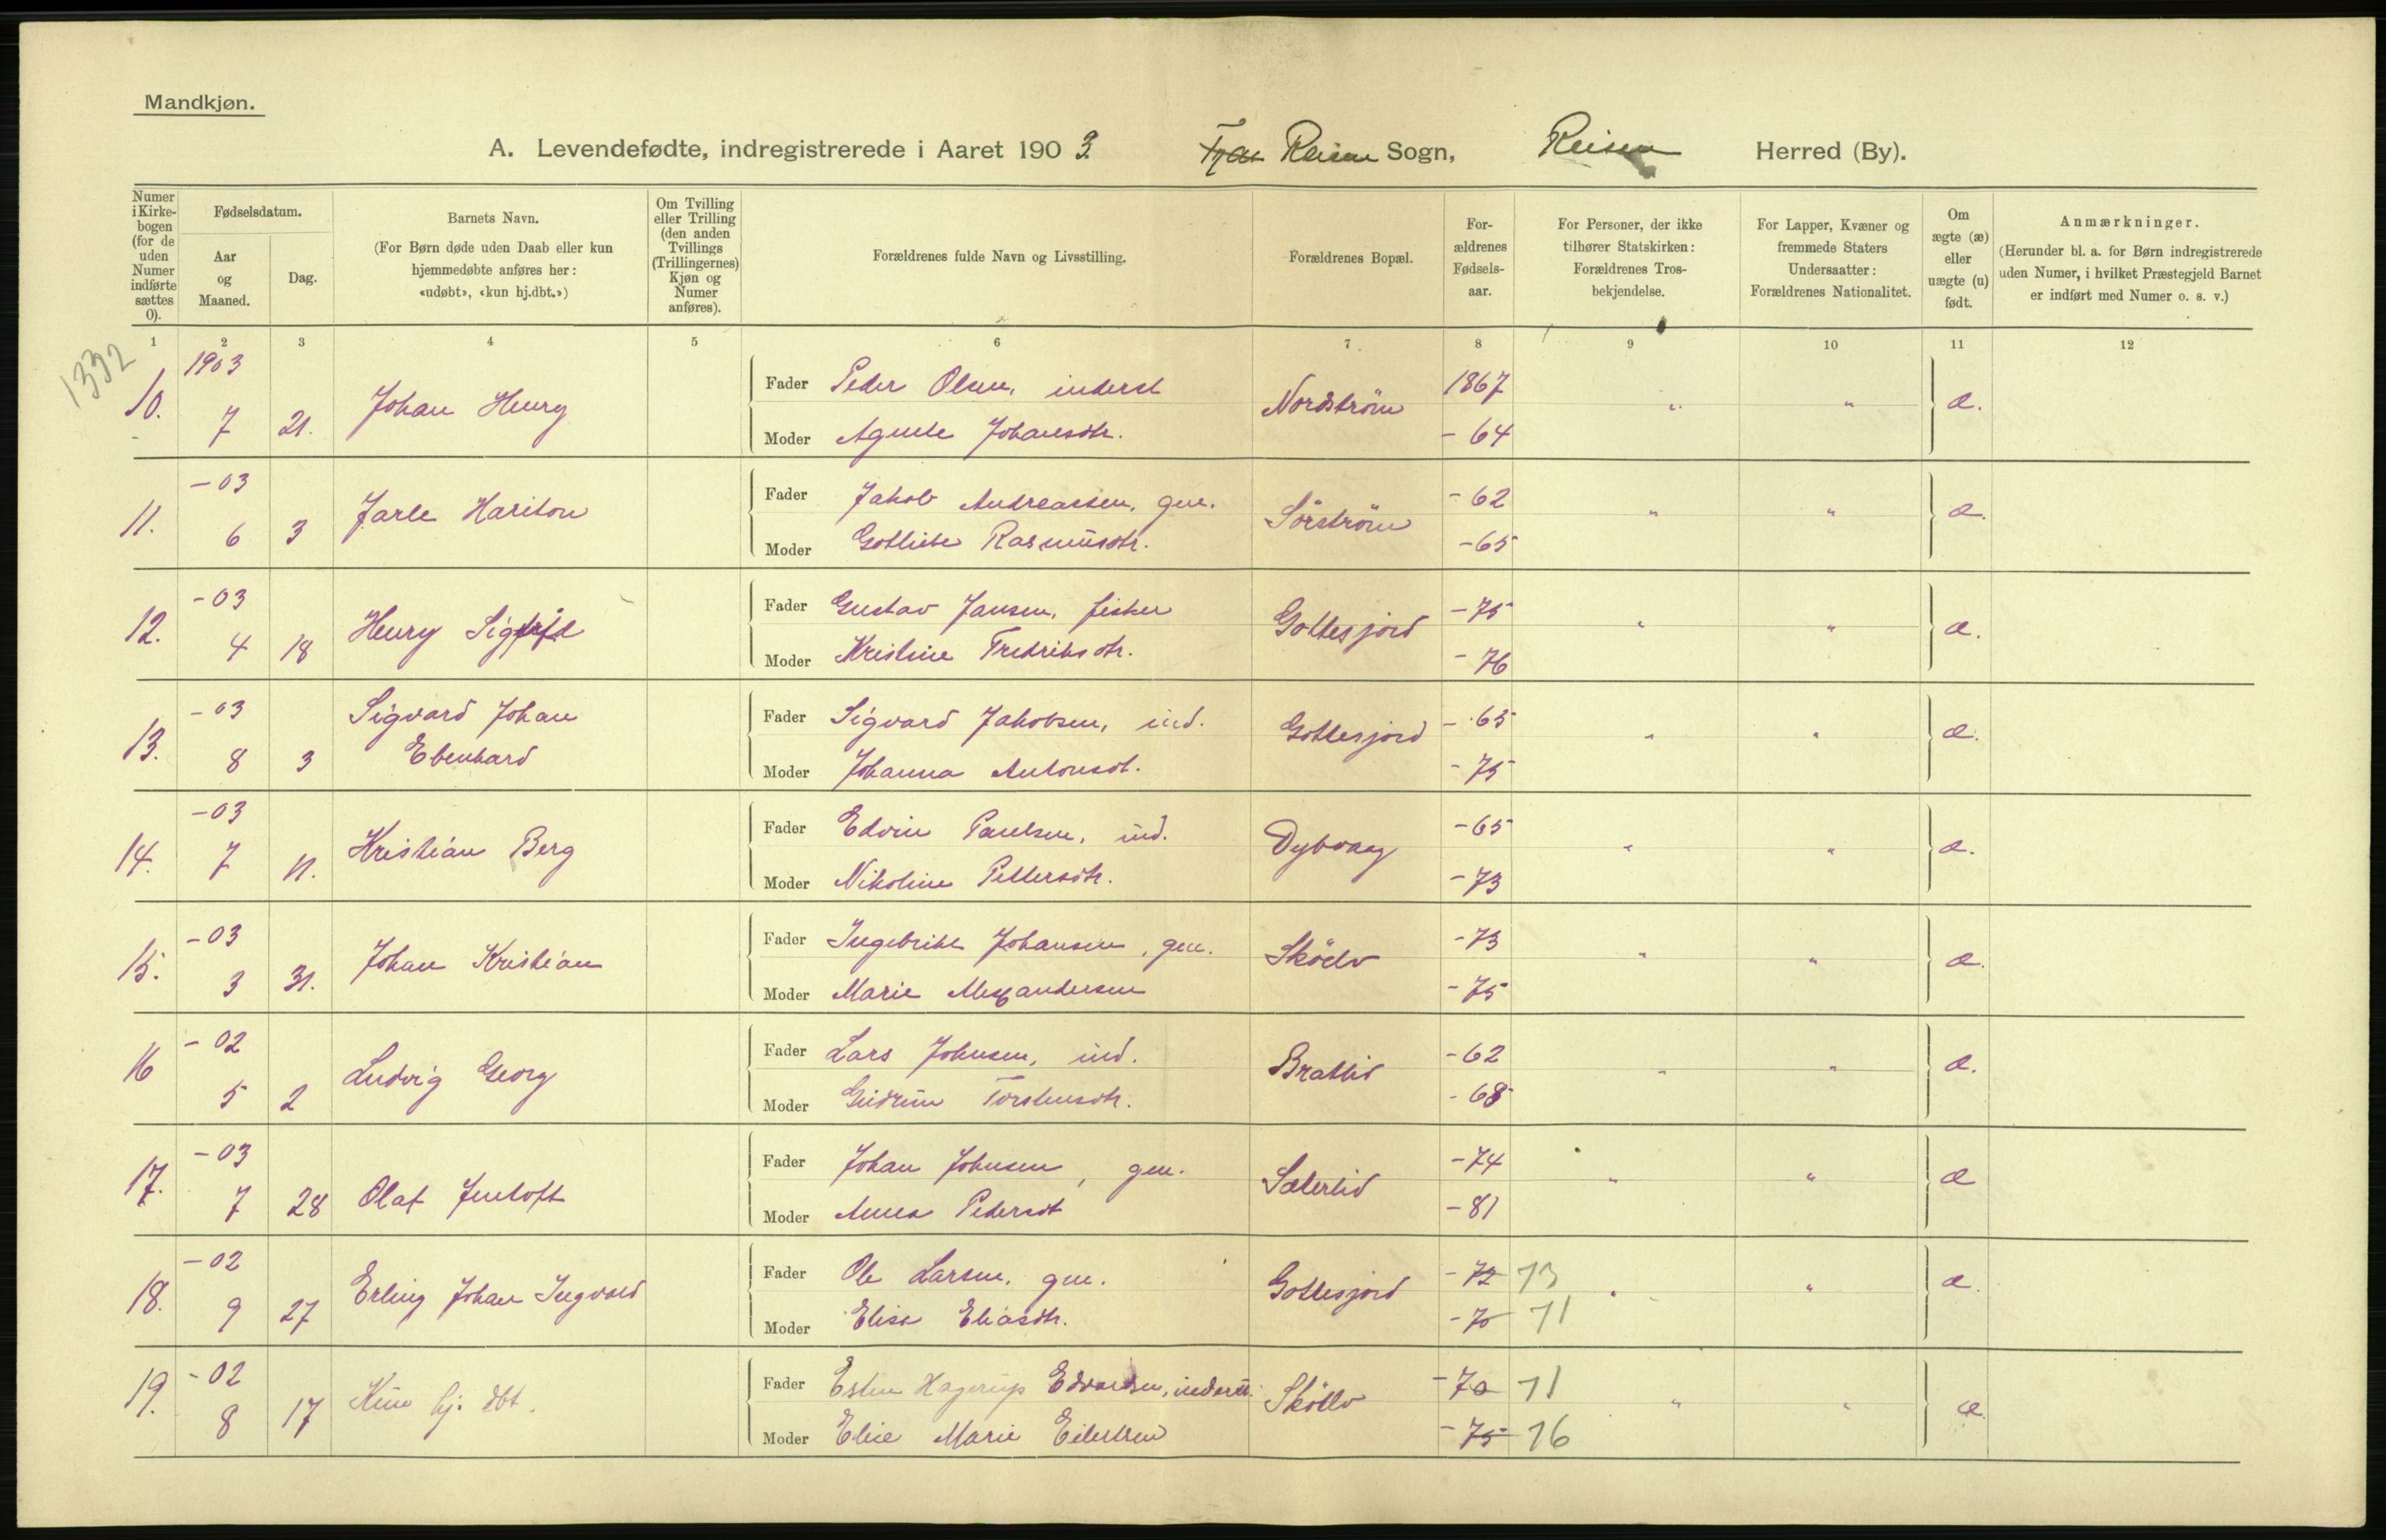 Mandkjøn.
A. Levendefødte, indregistrerede i Aaret 1903. Reisen Sogn, Reisen Herred (By).
Numer i Kirkebogen (for de uden Numer indførte sættes 0).
Fødselsdatum.
Aar og Maaned.
Dag.
Barnets Navn.
(For Børn døde uden Daab eller kun hjemmedøbte anføres her: «udøbt», «kun hj.dbt.»)
Om Tvilling eller Trilling (den anden Tvillings (Trillingernes) Kjøn og Numer anføres).
Forældrenes fulde Navn og Livsstilling.
Forældrenes Bopæl.
Forældrenes Fødselsaar.
For Personer, der ikke tilhører Statskirken: Forældrenes Trosbekjendelse.
For Lapper, Kvæner og fremmede Staters Undersaatter: Forældrenes Nationalitet.
Om ægte (æ) eller uægte (u) født.
Anmærkninger.
(Herunder bl. a. for Børn indregistrerede uden Numer, i hvilket Præstegjeld Barnet er indført med Numer o. s. v.)
1 2 3 4 5 6 7 8 9 10 11 12
1332
10. 1903 7 21. Johan Henry
Fader Peder Olsen, inderst Nordström 1867 " " æ.
Moder Agnete Johansdtr. - 64
11. - 03 6 3 Jarle Hariton
Fader Jakob Andreassen, gm. Sörström - 62 " " æ.
Moder Gotliebe Rasmusdtr. - 65
12. - 03 4 18 Henry
Fader Gustav Jansen, fisker Gottesjord - 75 " " æ.
Moder Kristine Fredriksdtr. - 76
13. - 03 8 3 Sigvard Johan
Ebenhard
Fader Sigvard Jakobsen, ind. Gottesjord - 65 " " æ.
Moder Johanna Antonsdt. - 75
14. - 03 7 11. Kristian Berg
Fader Edvin Paulsen, ind. Dybvaag - 65 " " æ.
Moder Nikoline Pettersdtr. - 73
15. - 03 3 31. Johan Kristian
Fader Ingebrikt Johansen, gm. - 73 " " æ.
Moder Marie Alexandersen - 75
16 - 02 5 2 Ludvig Georg
Fader Lars Johnsen, ind. Bratlid - 62 " " æ.
Moder Gudrun Torstensdtr. - 68
17. - 03 7 28 Olaf Jentoft
Fader Johan Johnsen, gm. Sæterlid - 74 " " æ
Moder Anna Pedersdt - 81
18. - 02 9 27 Erling Johan Ingvald
Fader Ole Larsen, gm. Gottesjord - 72 73 " " æ.
Moder Elisa Eliasdtr. - 70 71
19. - 02 8 17 Kun hj. dbt.
Fader Hagerup Edvardsen, inderst. - 70 71 " " æ.
Moder Elise Marie Eilertsen - 75 76